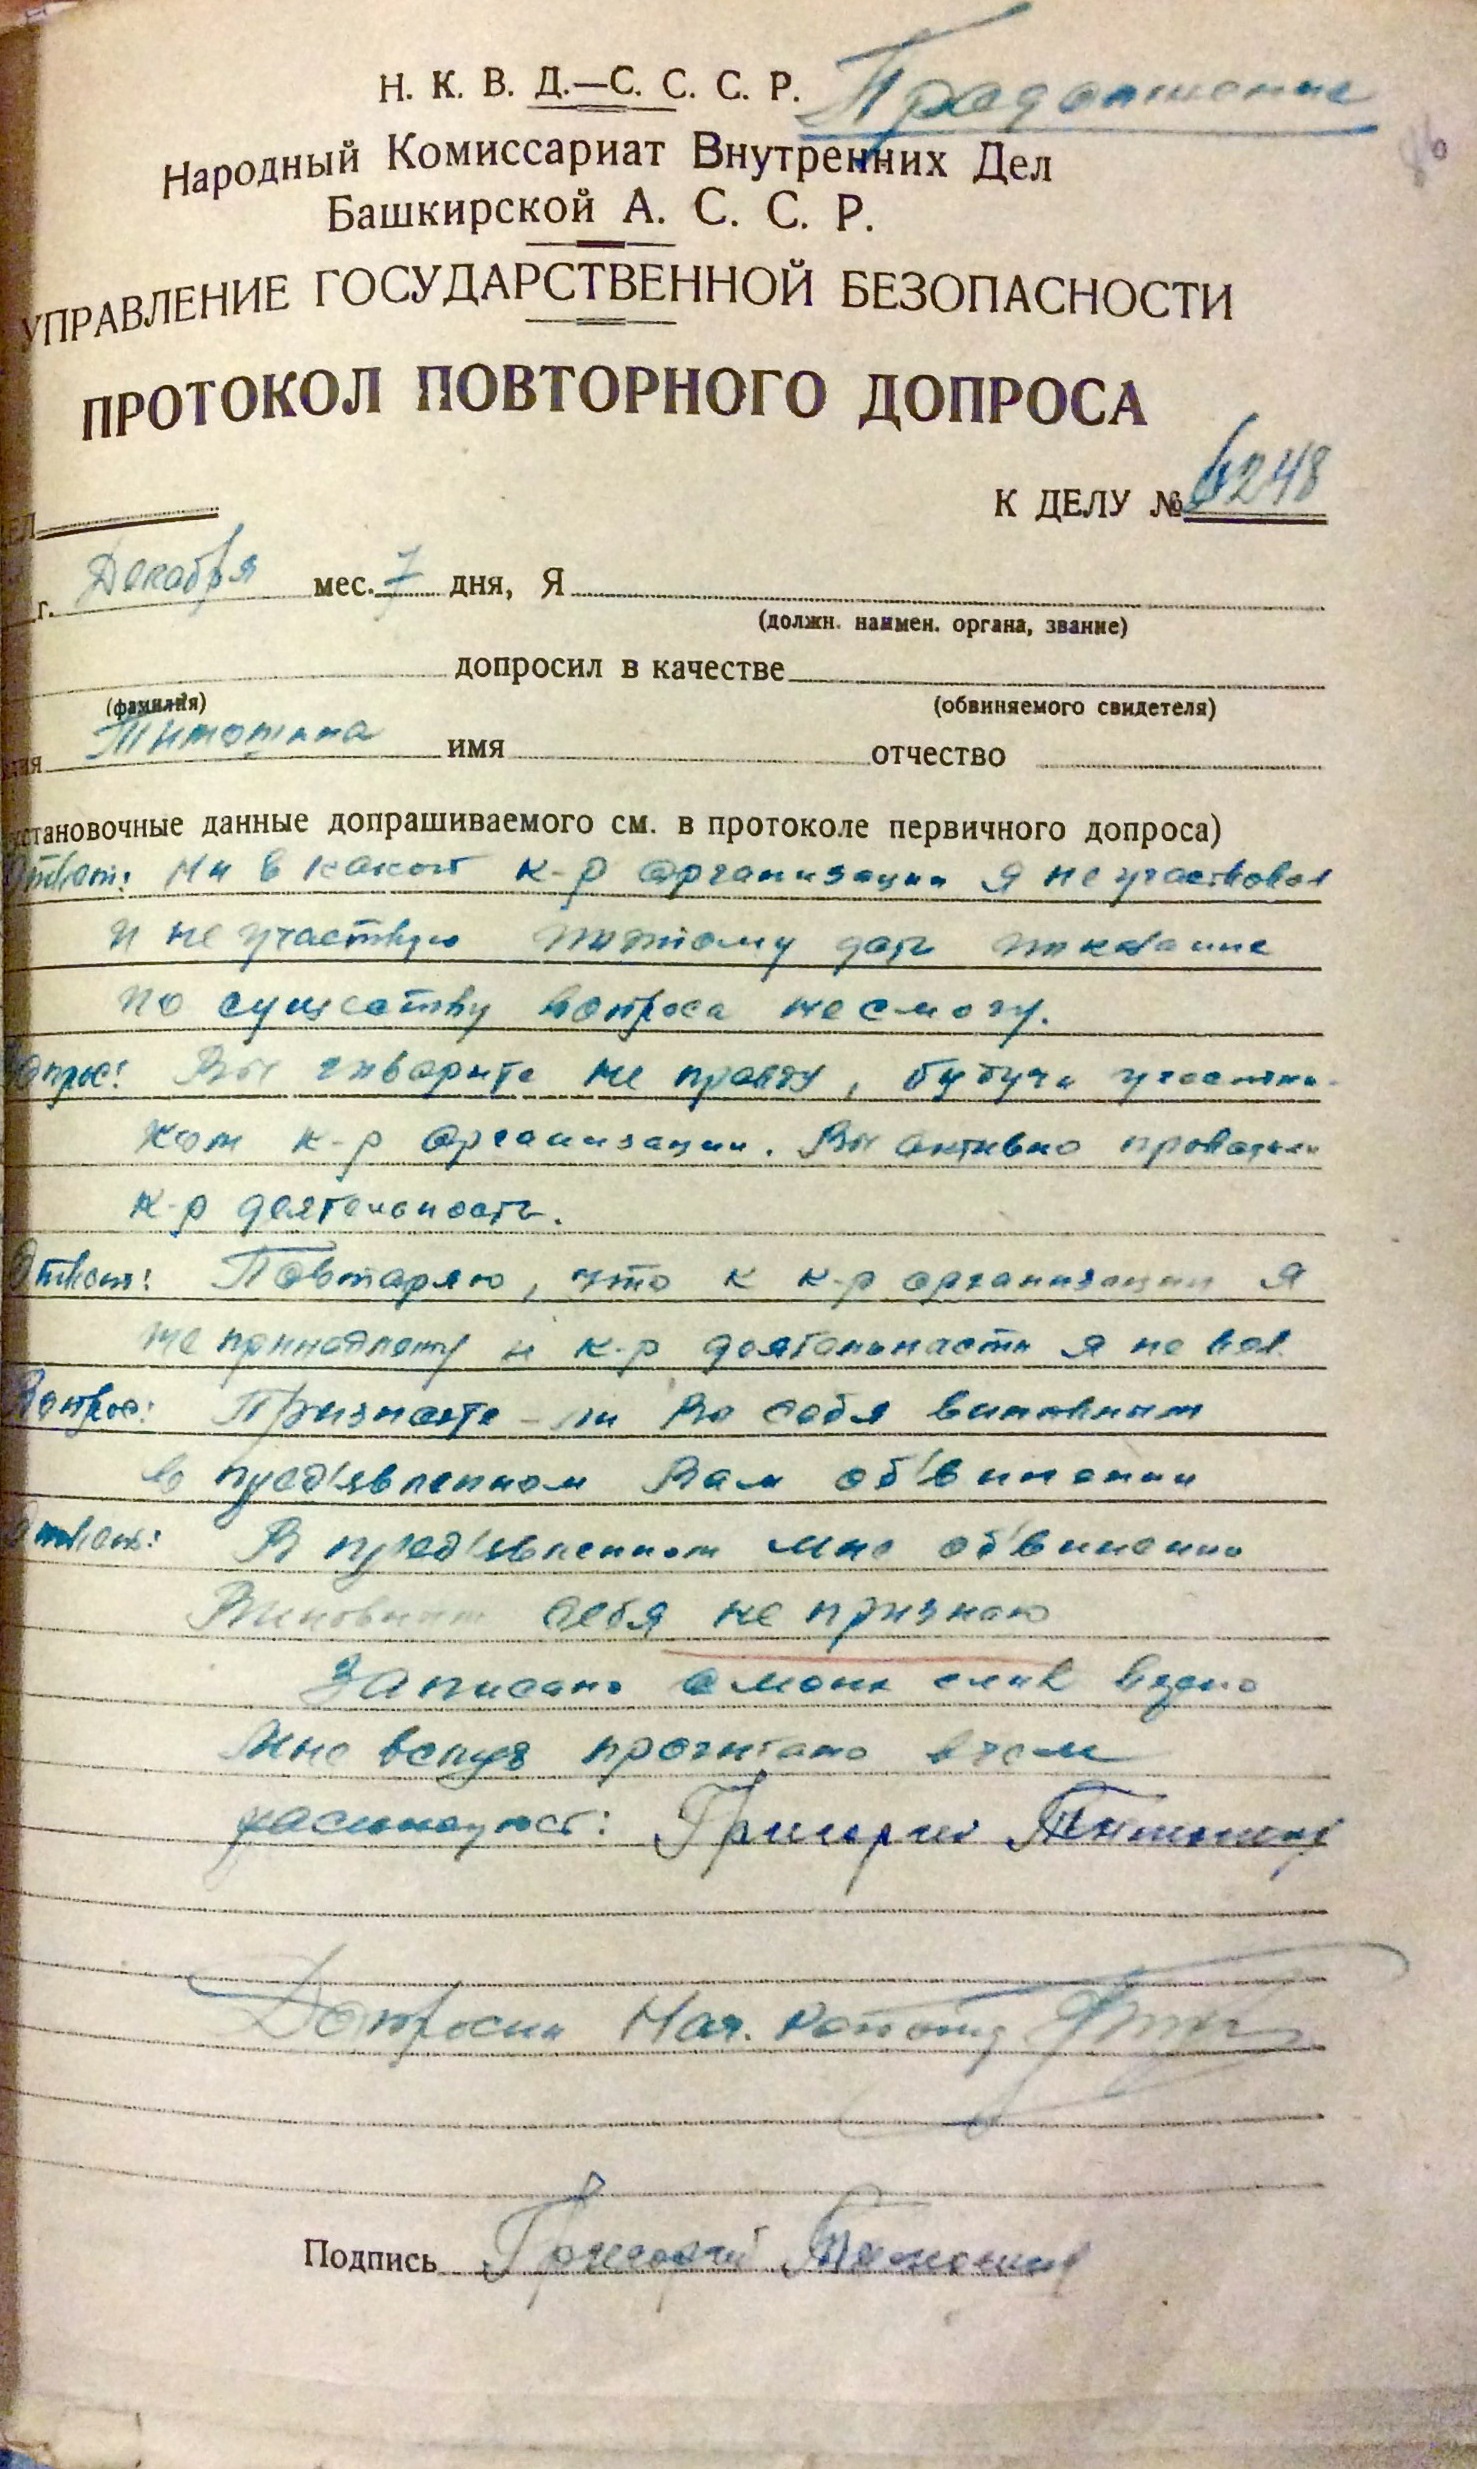 Н. К. В. Д.—С. С. С. Р. Продолжение
Народный Комиссариат Внутренних Дел
Башкирской А. С. С. Р.
УПРАВЛЕНИЕ ГОСУДАРСТВЕННОЙ БЕЗОПАСНОСТИ
ПРОТОКОЛ ПОВТОРНОГО ДОПРОСА
К ДЕЛУ № 6248
г. Декабря мес. 7 дня, Я
(должн. наимен. органа, звание)
допросил в качестве
(фамилия) (обвиняемого свидетеля)
имя отчество
установочные данные допрашиваемого см. в протоколе первичного допроса)
Ответ: Ни в какой к-р организации я не участвовал
и не участвую поэтому дать показание
по существу вопроса не смогу.
Вопрос: Вы говорите не правду, будучи участни-
ком к-р организации. Вы активно проводили
к-р деятельность.
Ответ: Повторяю, что к к-р организации я
не принадлежу и к-р деятельности я не вел.
Вопрос: Признаете-ли Вы себя виновным
в пред'явленном Вам об'винении
Ответ: В пред'явленном мне об'винении
Виновным себя не признаю
Записано с моих слов верно
мне вслух прочитано в чем
распишусь: Григорий
Допросил Нач.
Подпись Григорий